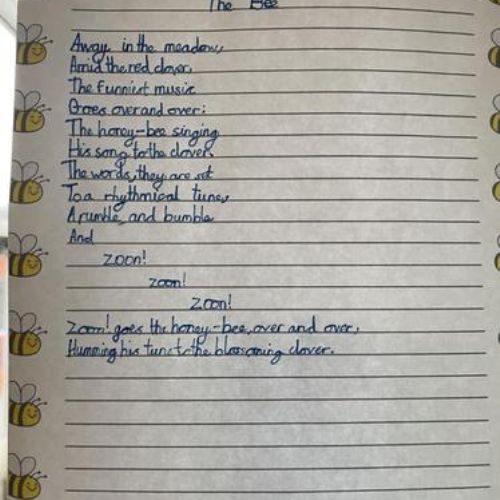 The Bee
Away in the meadow,
Amid the red clover,
The funniest music
Goes over and over:
The honey-bee singing
His song to the clover.
The words, they are set
To a rhythmical tune,
A rumble, and bumble
And
zoon!
zoon!
zoon!
Zoom! goes the honey-bee, over and over,
Humming his tune to the blossoming clover.